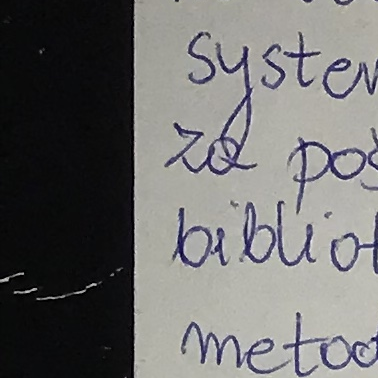 system
za poś
bibliot
metod